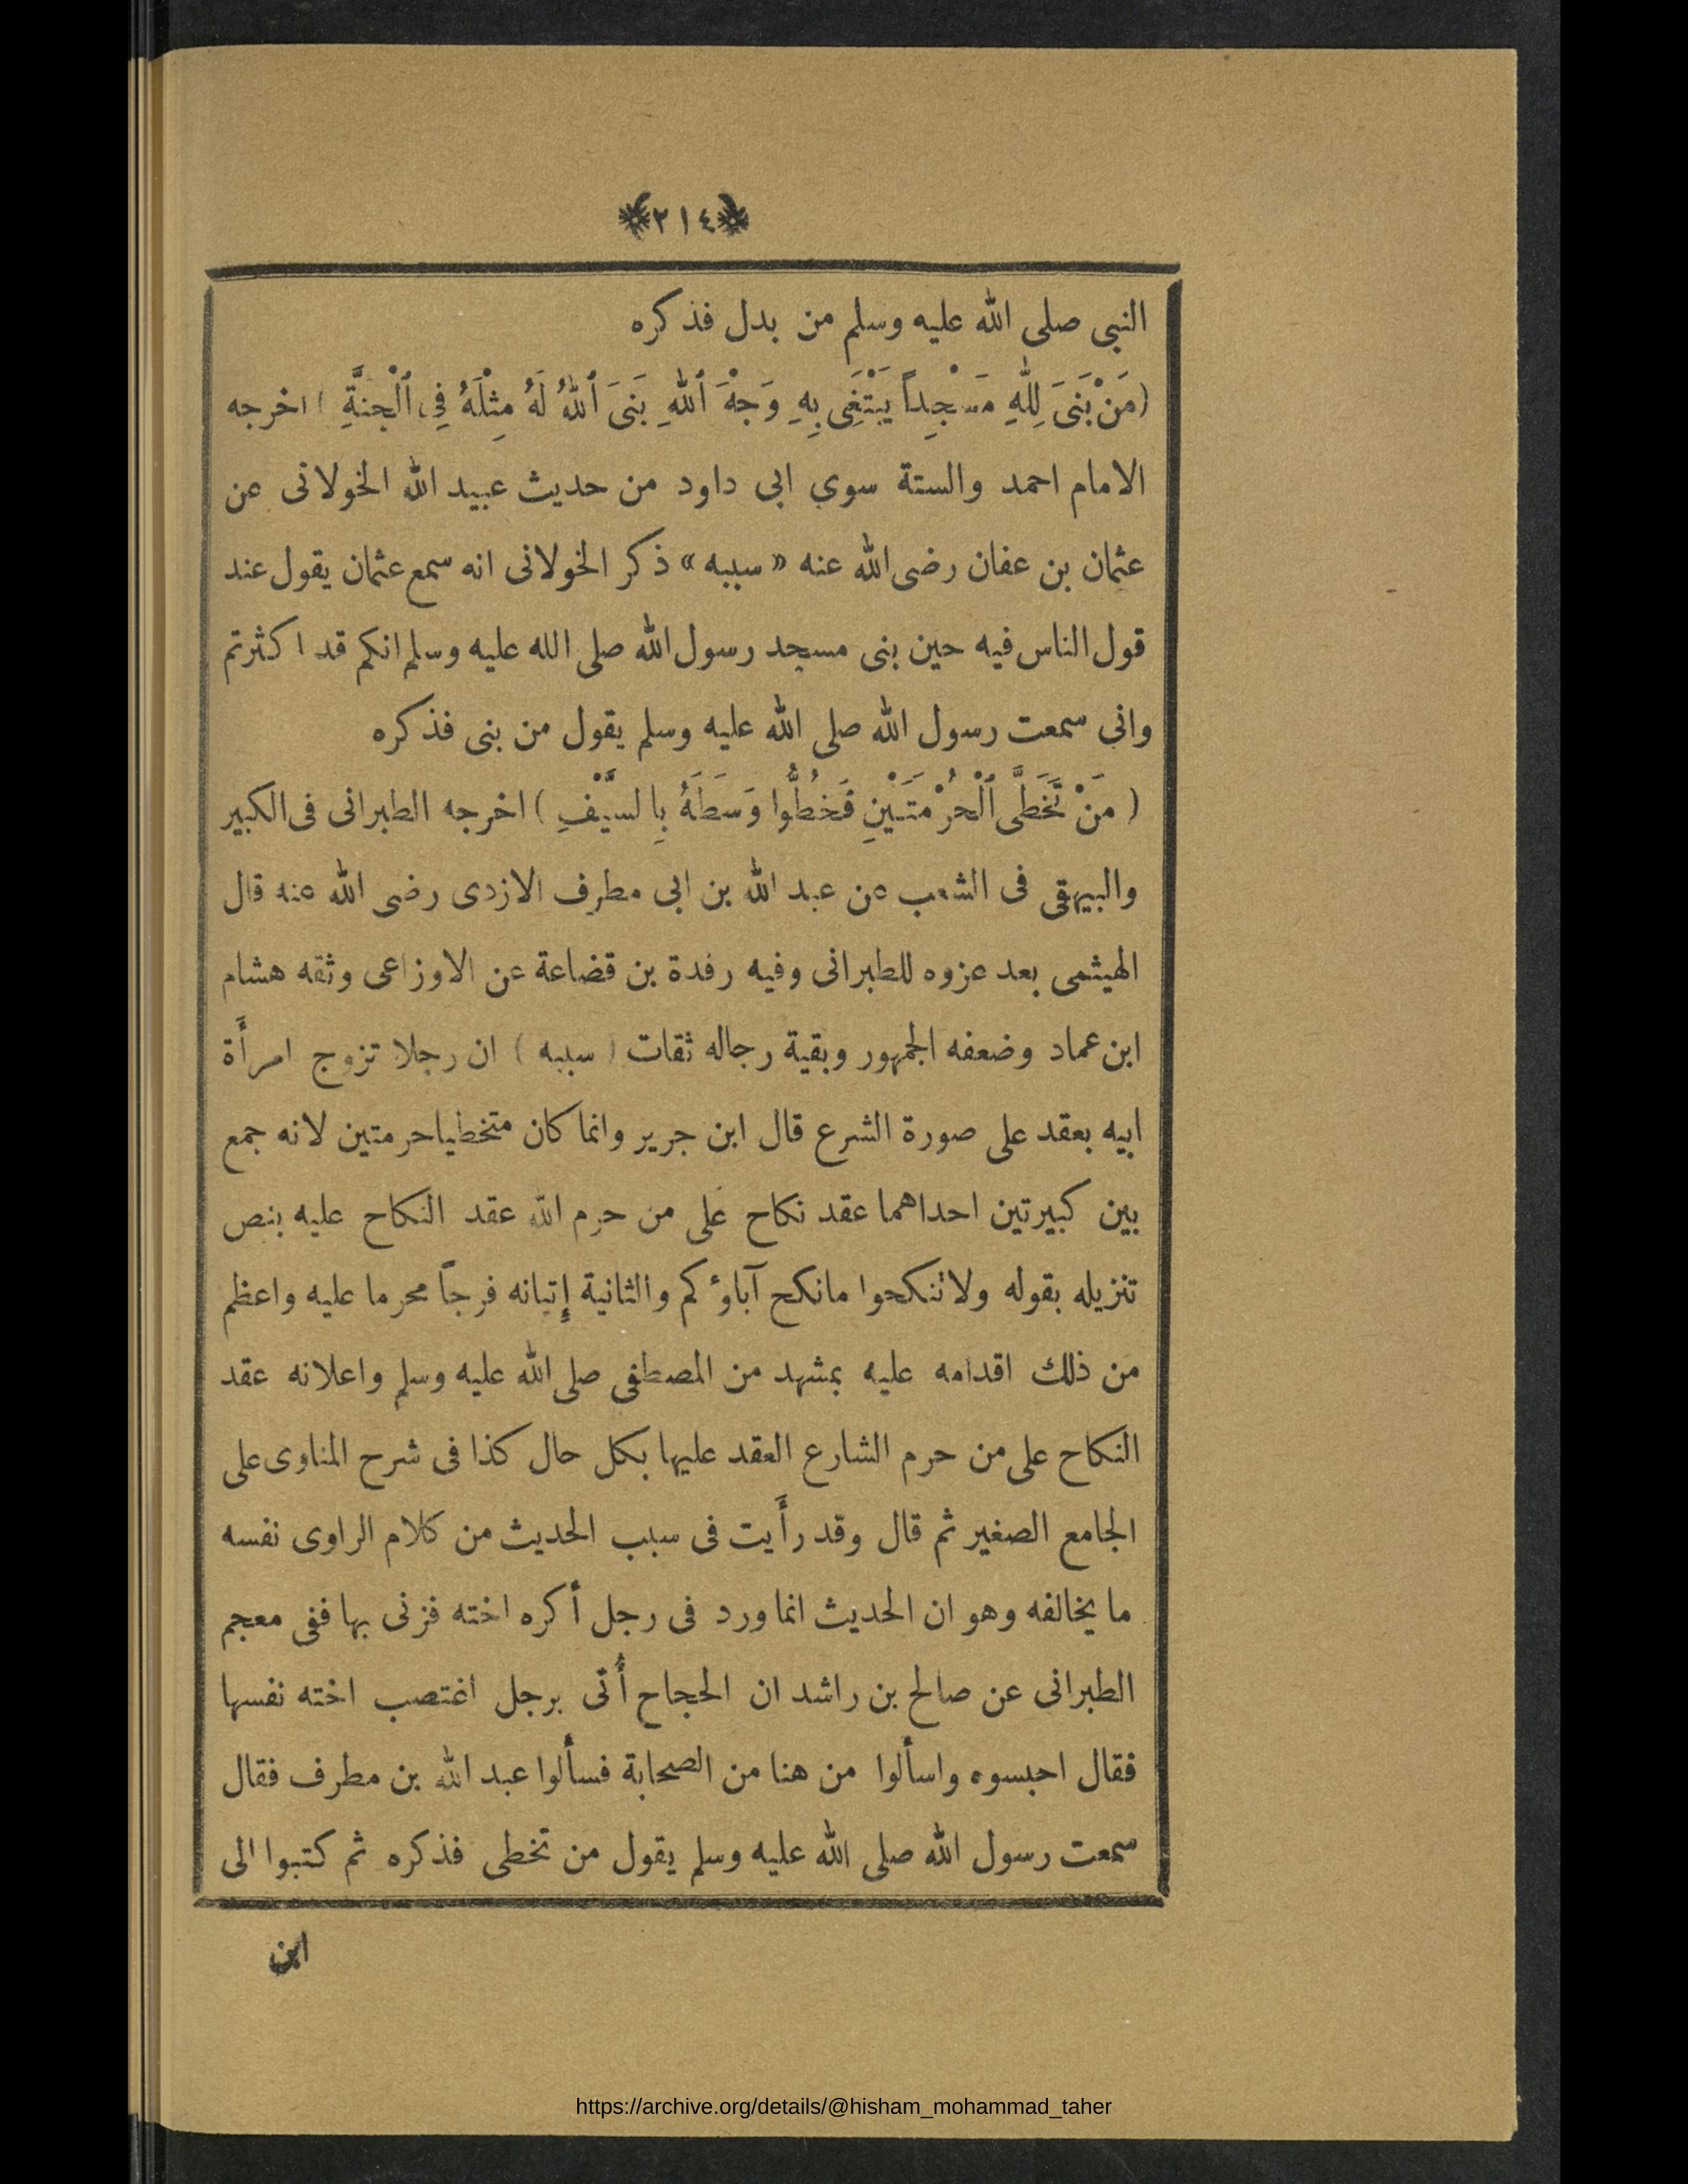 ﴿٢١٤﴾
النبى صلى الله عليه وسلم من بدل فذكره
(مَنْ بَنَىَ لِلّٰهِ مَسْجِداً يَبْتَغِى بِهِ وَجْهَ ٱللهِ بَنَىَ ٱللهُ لَهُ مِثْلَهُ فِى ٱلْجَنَّةِ ) اخرجه
الامام احمد والستة سوى ابى داود من حديث عبيد الله الخولانى عن
عثمان بن عفان رضى الله عنه « سببه » ذكر الخولانى انه سمع عثمان يقول عند
قول الناس فيه حين بنى مسجد رسول الله صلى الله عليه وسلم انكم قد اكثرتم
وانى سمعت رسول الله صلى الله عليه وسلم يقول من بنى فذكره
( مَنْ تَخَطَّى ٱلْحُرْمَتَيْنِ فَخُطُّوا وَسَطَهُ بِالسَّيْفِ ) اخرجه الطبرانى فى الكبير
والبيهقى فى الشعب عن عبد الله بن ابى مطرف الازدى رضى الله عنه قال
الهيثمى بعد عزوه للطبرانى وفيه رفدة بن قضاعة عن الاوزاعى وثقه هشام
ابن عماد وضعفه الجمهور وبقية رجاله ثقات ( سببه ) ان رجلا تزوج امرأَة
ابيه بعقد على صورة الشرع قال ابن جرير وانما كان متخطيا حرمتين لانه جمع
بين كبيرتين احداهما عقد نكاح على من حرم الله عقد النكاح عليه بنص
تنزيله بقوله ولا تنكحوا مانكح آباؤكم والثانية إتيانه فرجاً محرما عليه واعظم
من ذلك اقدامه عليه بمشهد من المصطفى صلى الله عليه وسلم واعلانه عقد
النكاح على من حرم الشارع العقد عليها بكل حال كذا فى شرح المناوى على
الجامع الصغير ثم قال وقد رأَيت فى سبب الحديث من كلام الراوى نفسه
ما يخالفه وهو ان الحديث انما ورد فى رجل أكره اخته فزنى بها ففى معجم
الطبرانى عن صالح بن راشد ان الحجاج أُتى برجل اغتصب اخته نفسها
فقال احبسوه واسألوا من هنا من الصحابة فسألوا عبد الله بن مطرف فقال
سمعت رسول الله صلى الله عليه وسلم يقول من تخطى فذكره ثم كتبوا الى
ابن
https://archive.org/details/@hisham_mohammad_taher